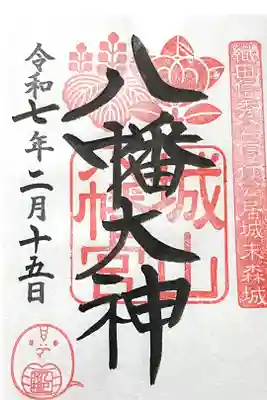 織田信秀公信行公居城末森城
八幡大神
城山
八幡宮
令和七年二月十五日